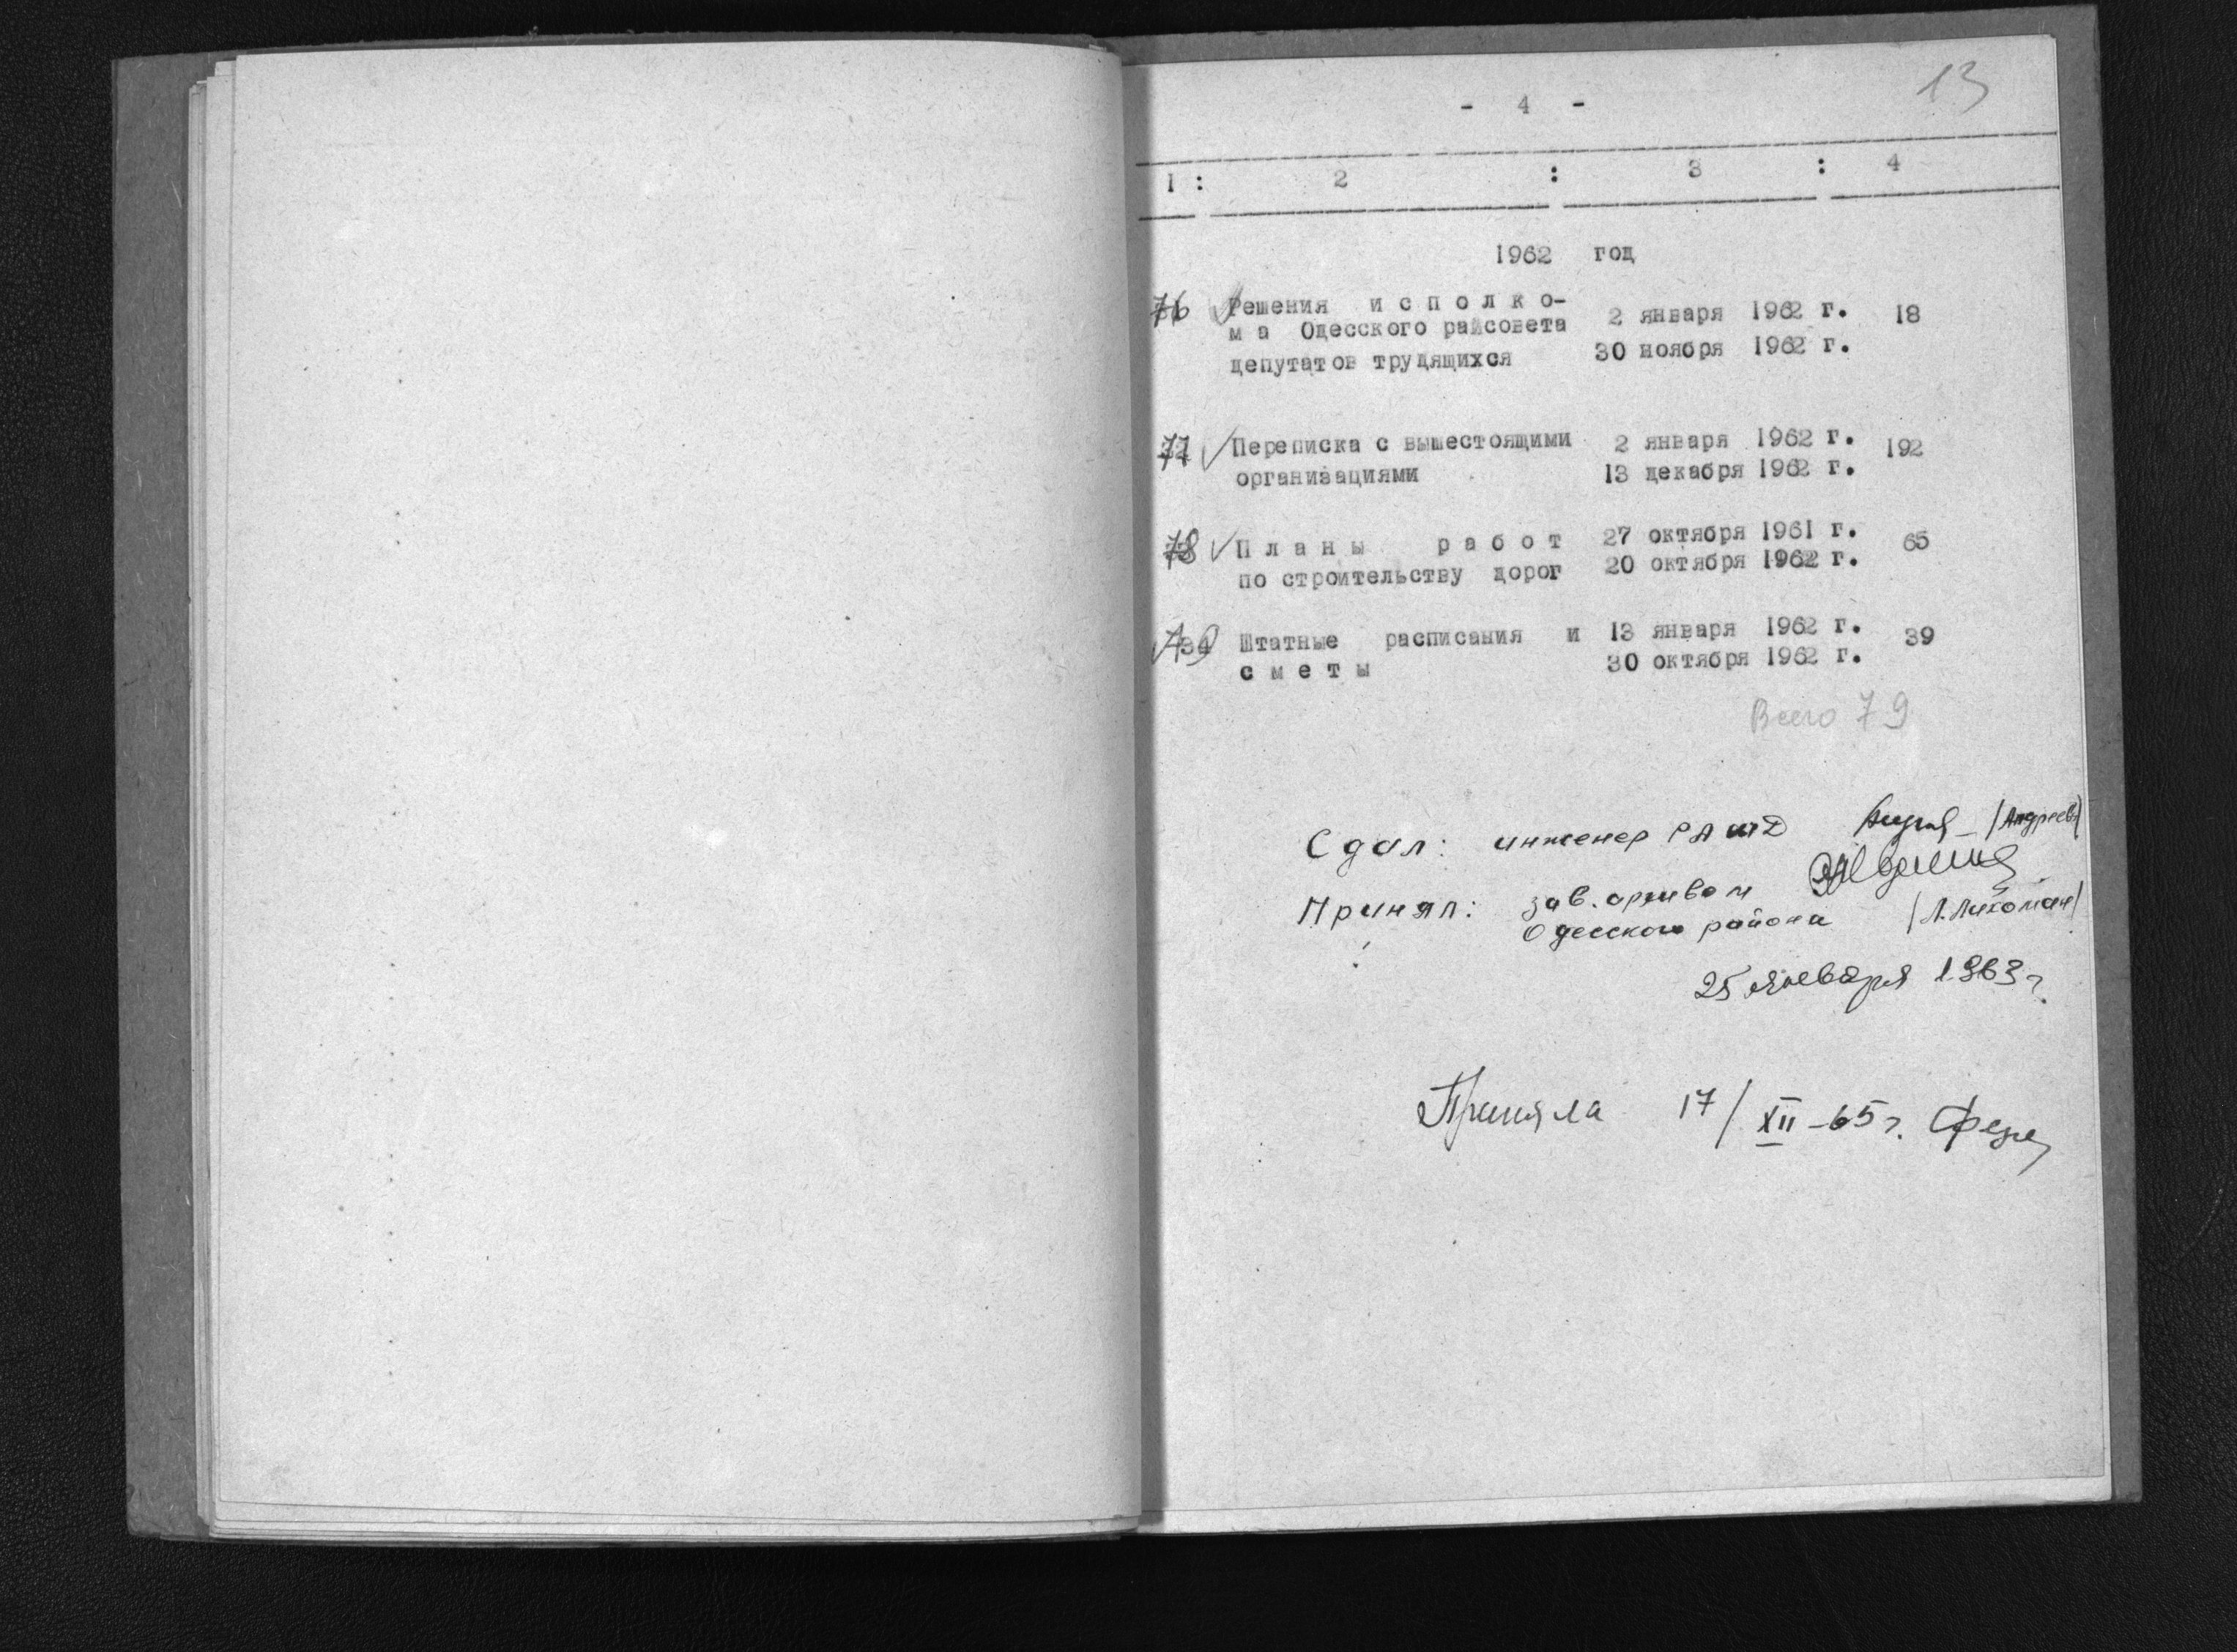 13
- 4 -
1 : 2 : 3 : 4
1962 год
76 Решения исполко- 2 января 1962 г. 18
ма Одесского райсовета
депутатов трудящихся 30 ноября 1962 г.
77 Переписка с вышестоящими 2 января 1962 г. 192
организациями 13 декабря 1962 г.
78 Планы работ 27 октября 1961 г. 65
по строительству дорог 20 октября 1962 г.
79 Штатные расписания и 13 января 1962 г. 39
сметы 30 октября 1962 г.
Всего 79
Сдал: инженер (Андреев)
Принял: зав. архивом
Одесского района
25 января 1963 г.
Приняла 17/XII-65 г.